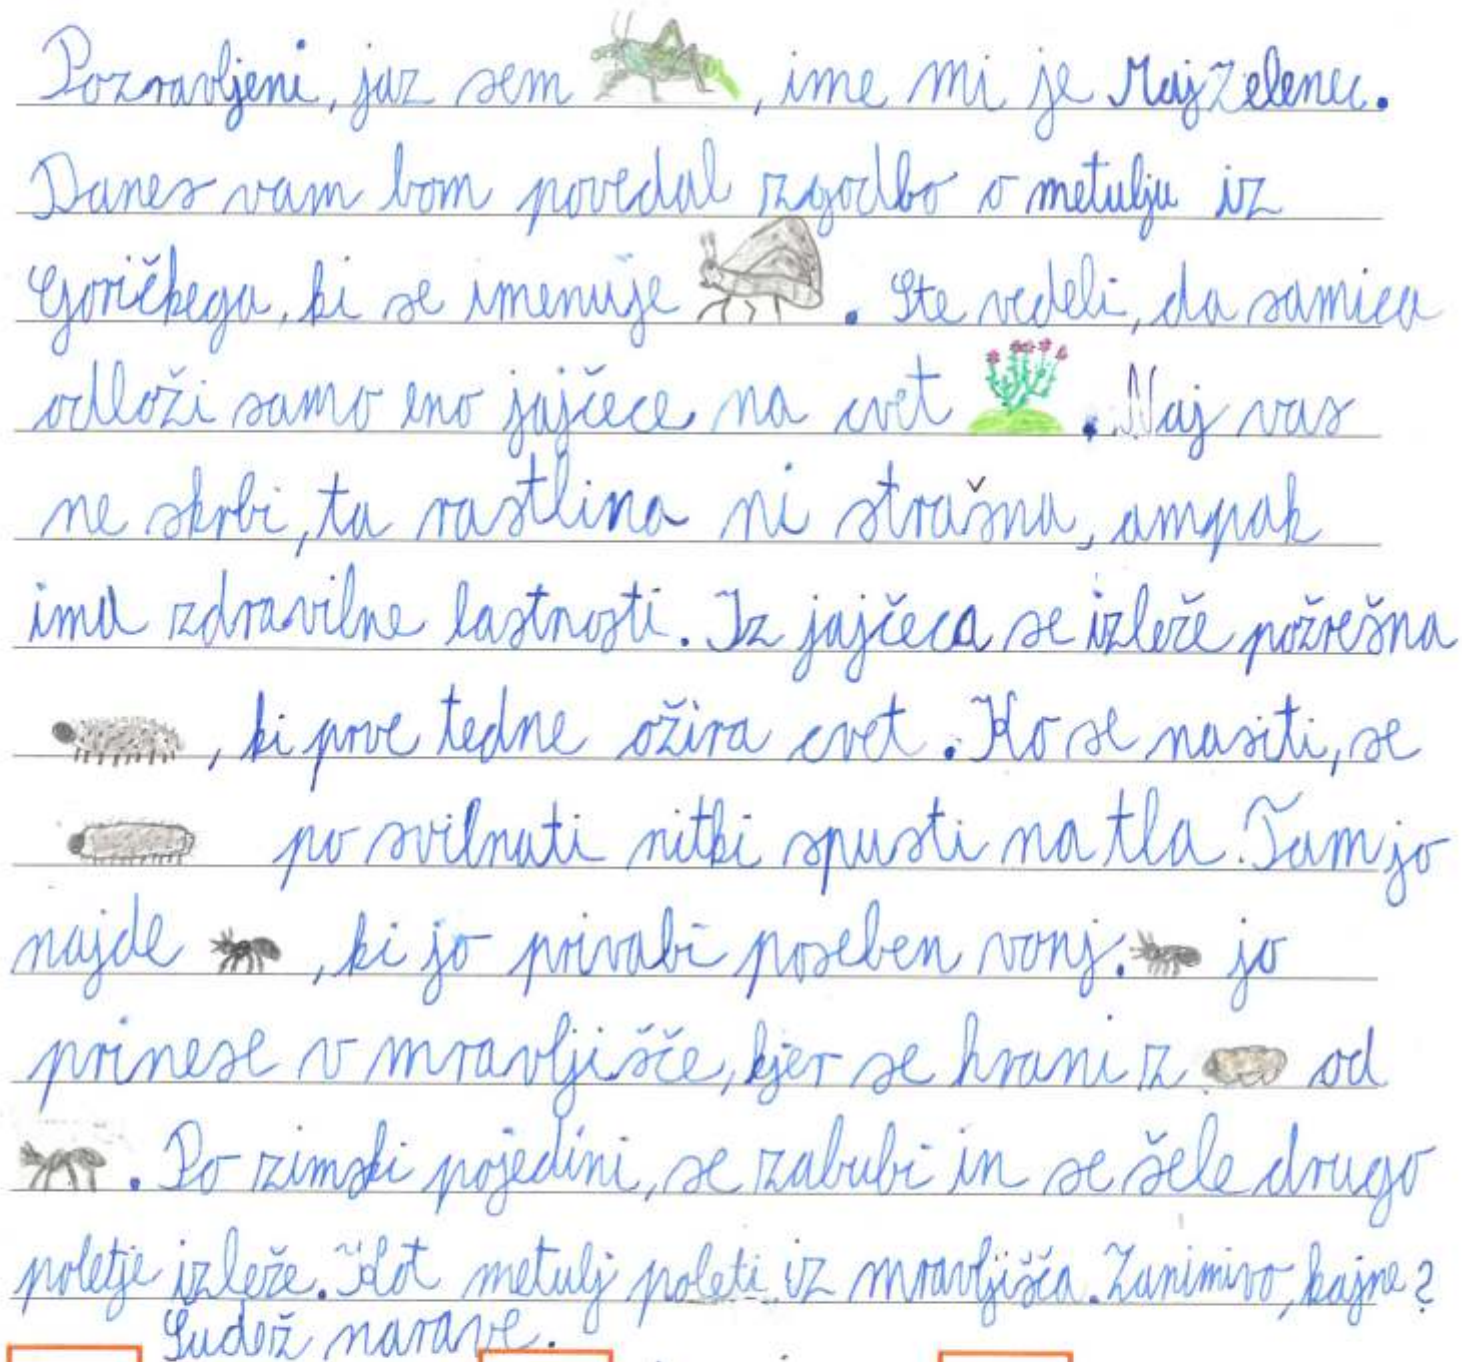 Pozravljeni, jaz sem , ime mi je Maj Zelenec.
Danes vam bom povedal zgodbo o metulju iz
Goričkega, ki se imenuje . Ste vedeli, da samica
odloži samo eno jajčece na cvet . Naj vas
ne skrbi, ta rastlina ni strašna, ampak
ima zdravilne lastnosti. Iz jajčeca se izleže požrešna
, ki prve tedne ožira cvet. Ko se nasiti, se
po svilnati nitki spusti na tla. Tam jo
najde , ki jo privabi poseben vonj. jo
prinese v mravljišče, kjer se hrani z od
. Po zimski pojedini, se zabubi in se šele drugo
poletje izleže. Kot metulj poleti iz mravljišča. Zanimivo, kajne?
čudež narave.